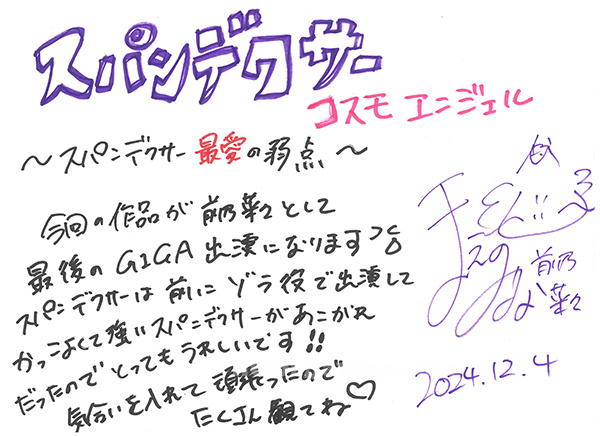 スパンデクサー
コスモエンジェル
〜スパンデクサー最愛の弱点〜
今回の作品が前乃菜々として
最後のGIGA出演になります
スパンデクサーは前にゾラ役で出演して
かっこよくて強いスパンデクサーがあこがれ
だったのでとってもうれしいです!!
気合いを入れて頑張ったので
たくさん観てね♡
前乃
菜々
2024.12.4